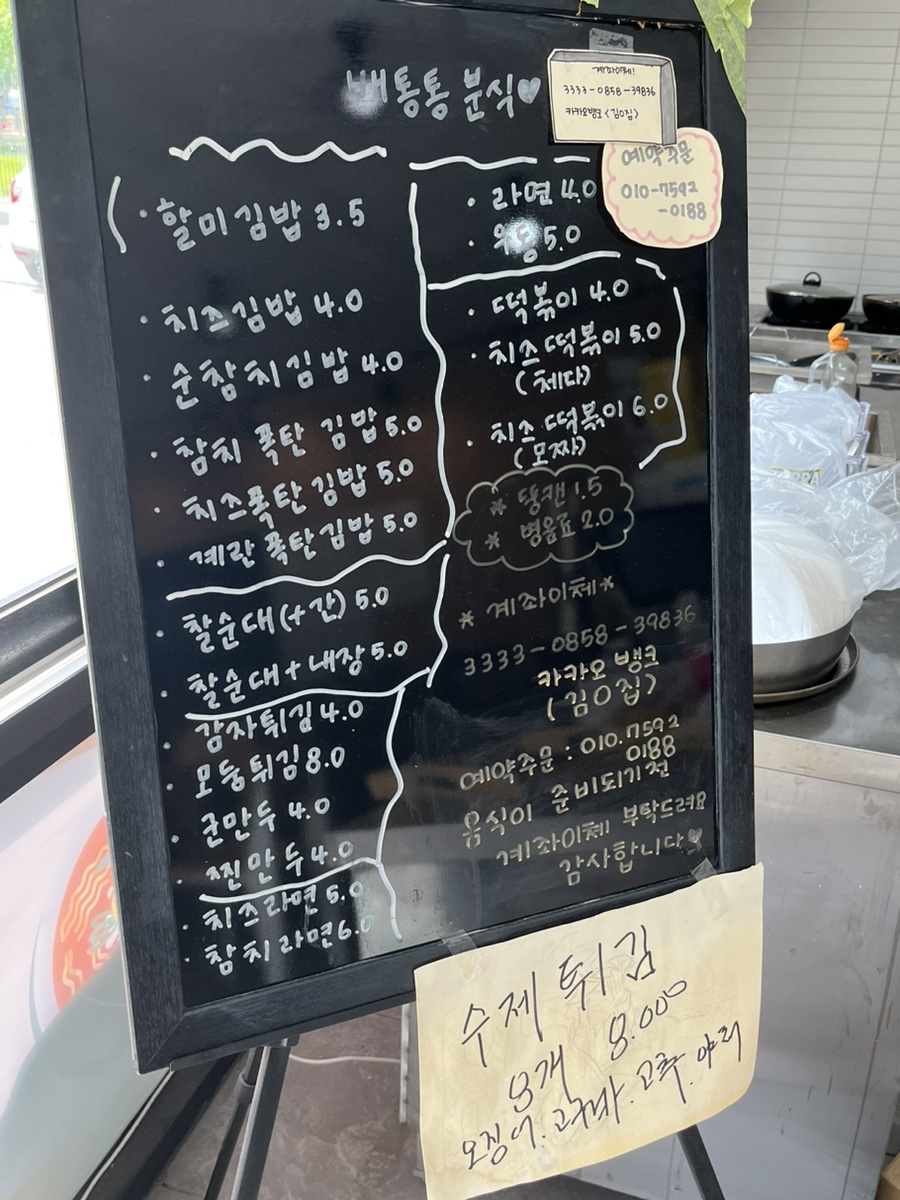 빼통통 분식♥
계좌이체!
3333-0858-39836
카카오뱅크 <김O집>
예약주문
010-7592
-0188
· 할미김밥 3.5
· 치즈김밥 4.0
· 순참치김밥 4.0
· 참치 폭탄 김밥 5.0
· 치즈폭탄김밥 5.0
· 계란 폭탄김밥 5.0
· 찰순대(+간) 5.0
· 찰순대+내장 5.0
· 감자튀김 4.0
· 모둠튀김 8.0
· 군만두 4.0
· 찐만두 4.0
· 치즈라면 5.0
· 참치라면 6.0
· 라면 4.0
· 우동 5.0
· 떡볶이 4.0
· 치즈떡볶이 5.0
(체다)
· 치즈 떡볶이 6.0
(모짜)
* 뚱캔 1.5
* 병음료 2.0
* 계좌이체 *
3333-0858-39836
카카오 뱅크
(김O집)
예약주문 : 010.7592
0188
음식이 준비되기전
계좌이체 부탁드려요
감사합니다♥
수제 튀김
8개 8.000
오징어.고구마.고추.야채